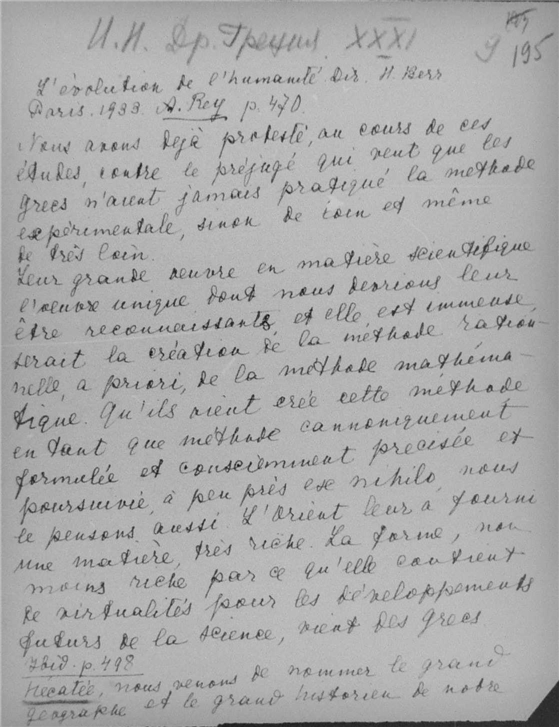 И. Н. Др. Греция XXXI
9 195
L'évolution de l'humanité. Dir. H. Berr
Paris. 1933. A. Rey p. 470.
Nous avons dejà protesté, au cours de ces
études, contre le préjugé qui veut que les
grecs n'aient jamais pratiqué la methode
expérimentale, sinon de loin et même
de très loin.
Leur grande oeuvre en matière scientifique
l'oeuvre unique dont nous devrions leur
être reconnaissants, et elle est immense,
serait la création de la méthode ration-
nelle, a priori, de la méthode mathéma-
tique. Qu'ils aient crée cette méthode
en tant que méthode cannoniquement
formulée et consciemment precisée et
poursuivie, à peu près ex nihilo, nous
le pensons aussi. L'Orient leur a fourni
une matière, très riche. La forme, non
moins riche par ce qu'elle contient
de virtualités pour les développements
futurs de la science, vient des grecs
Ibid. p. 498
Hécatée, nous venons de nommer le grand
géographe et le grand historien de notre